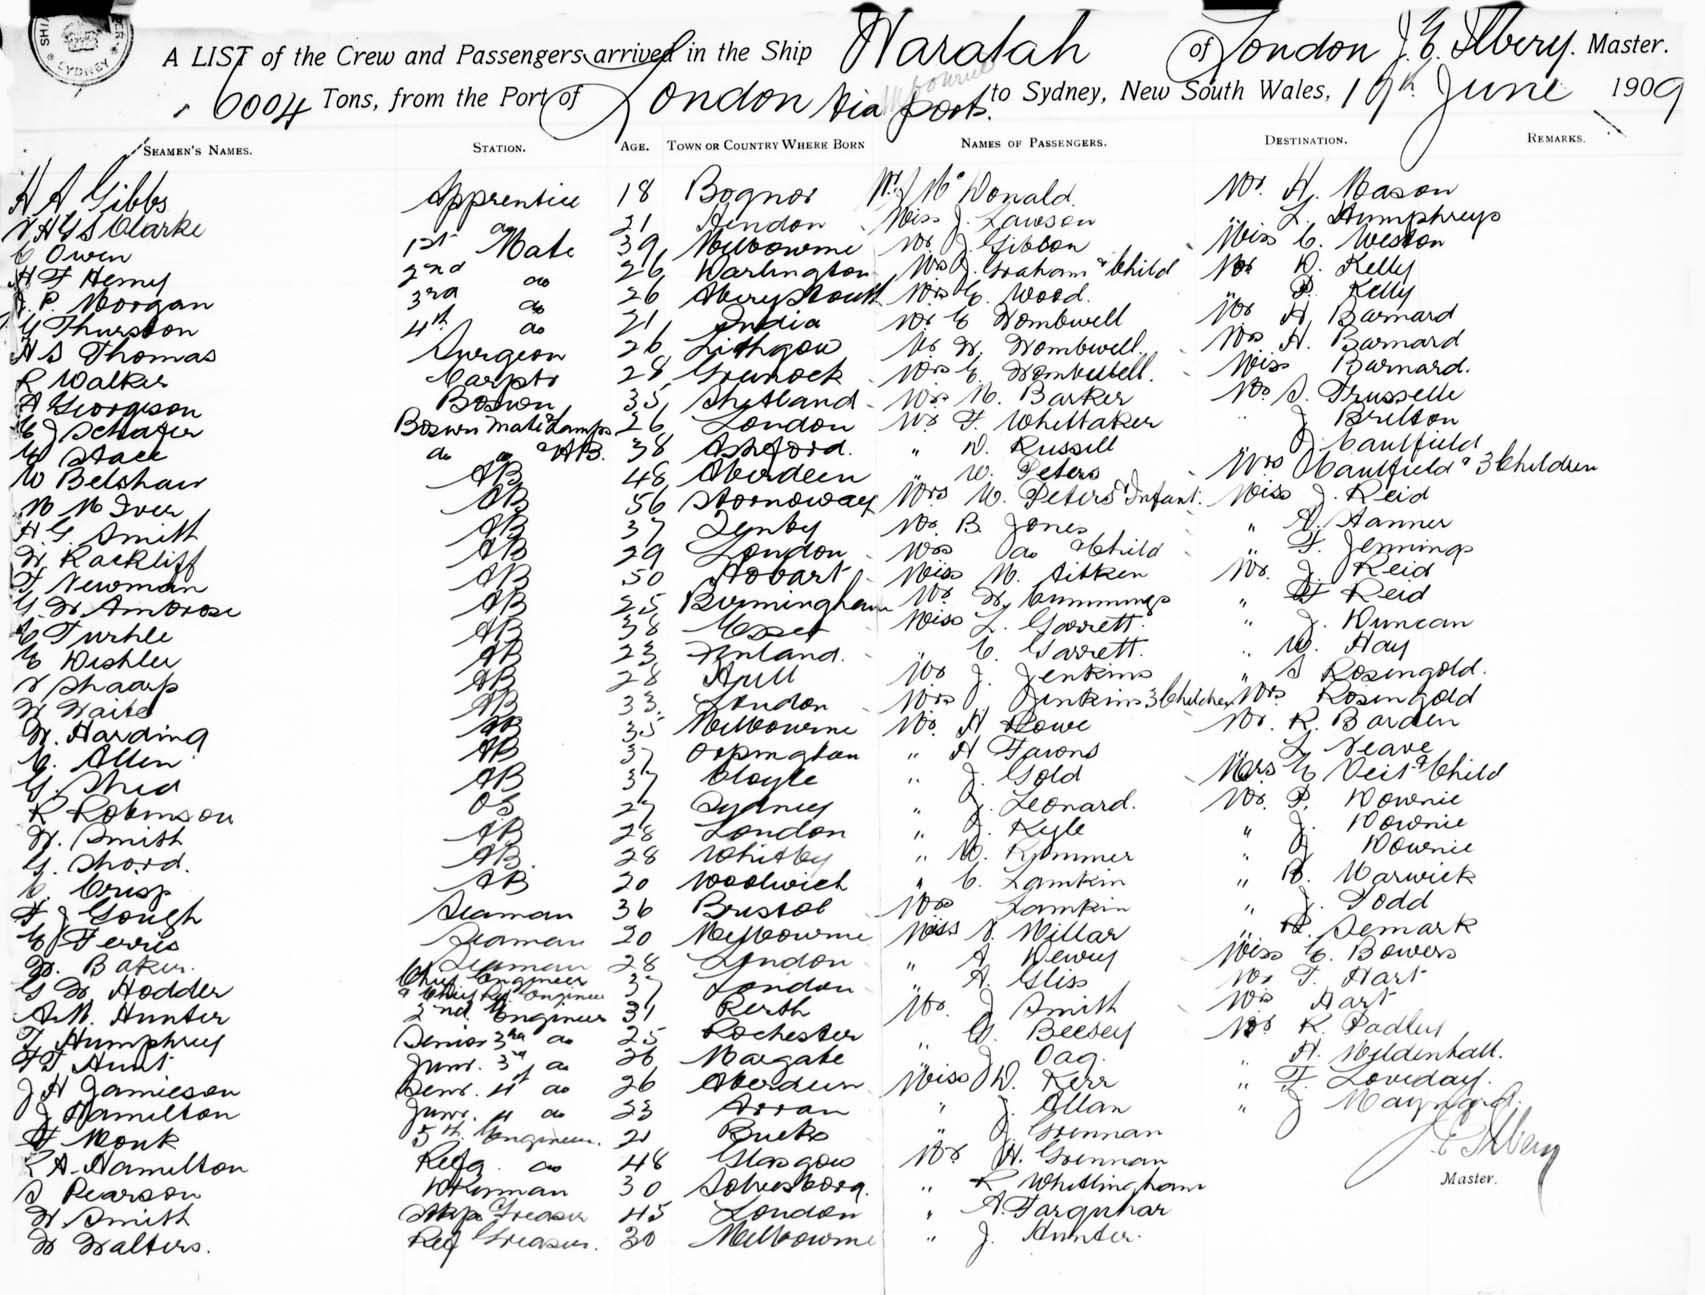 A LIST of the Crew and Passengers arrived in the Ship Waratah of London J. E. Ilbery. Master.
6004 Tons, from the Port of London via ports. to Sydney, New South Wales, 19th June 1909
SEAMEN'S NAMES. STATION. AGE. TOWN OR COUNTRY WHERE BORN NAMES OF PASSENGERS. DESTINATION. REMARKS.
H A Gibbs Apprentice 18 Bognor Mr J McDonald. Mr. H. Mason
V H G S Clarke do 21 Hendon Miss J. Lawson " L. Humphreys
C Owen 1st Mate 39 Melbourne Mr J Gibbon Miss C. Weston
H F Hemy 2nd do 26 Warlington Mrs J. Graham & Child Mr D. Kelly
P. Morgan 3rd do 26 Aberystwith Mrs E. Wood. " P. Kelly
G Thurston 4th do 21 India Mr E Wombwell Mr A Barnard
H S Thomas Surgeon 26 Lithgow Mr W. Wombwell. Mrs H. Barnard
R Walker Carptr 28 Greenock Mrs E. Wombwell. Miss Barnard.
A Georgeson Boswn 35 Shetland Mrs M. Barker Mr S. Trusselle
C J Schafer Boswns Mate & Lamps 26 London Mr F. Whittaker " J Britton
E Stace do do & AB. 38 Ashford. " D. Russell J Caulfield
W Belshaw AB 48 Aberdeen " W. Peters Mrs Caulfield & 3 Children
M McIver AB 56 Stornoway Mrs W. Peters & Infant. Miss J. Reid
H. G. Smith AB 37 Tenby Mr. B. Jones " A. Hanner
W. Rackliff AB 29 London Mrs do & Child " F. Jennings
F. Newman AB 50 Hobart Miss M. Aitken Mr. J. Reid
G. W. Ambrose AB 25 Birmingham Mr. W. Cummings " Reid
C Turtle AB 38 Essex Miss L. Garrett. " J. Duncan
E Dishler AB 23 Finland. " C. Garrett. " W. Hay
V Sharp AB 28 Hull Mr J. Jenkins " S Rosingold.
W Waite AB 33. London Mrs Jenkins 3 Children Mrs Rosingold
W. Harding AB 35 Melbourne Mr. H Rowe Mr. R. Barden
C. Allen AB 37 Orpington " H Farons " L. Neave
G. Shed AB 37 Cloyle " J. Gold Mrs E Veit & Child
R Robinson OS 27 Sydney " J. Leonard. Mr. P. Downie
W. Smith AB 28 London " J. Kyle " J. Downie
G. Shord. AB. 28 Whitby " W. Kummer " J Downie
C. Crisp AB 20 Woolwich " C. Lamkin " B. Warwick
F J Gough Seaman 36 Bristol Mrs Lamkin " J. Todd
E Ferris Seaman 20 Melbourne Miss V. Millar " Semark
W. Baker. Seaman 28 London " A Dewry Miss E. Bowers
G W Hodder Chief Engineer & Chief Ref. Engineer 37 London " A. Gliss Mr F. Hart
A. M. Hunter 2nd Engineer 31 Perth Mr. J Smith Mrs Hart
F Humphrey Senior 3rd do 25 Rochester " G. Beesey Mr R. Padley
F T Hunt Junr. 3rd do 26 Margate " J Dag. " H. Mildenhall.
J H Jamieson Senr. 4 do 26 Aberdeen Miss D. Kerr " F. Loveday.
J Hamilton Junr. 4 do 23 Arran " J. Allan " J Maynard.
F Monk 5th Engineer. 21 Bucks " J Grennan
A. Hamilton Refg. do 48 Glasgow Mr H. Grennan J E Ilbery
S Pearson 30 Solvesborg. " R Whitlingham Master.
W. Smith Greaser 45 London " A. Farquhar
W Walters. Ref Greaser. 30 Melbourne " J. Hunter.